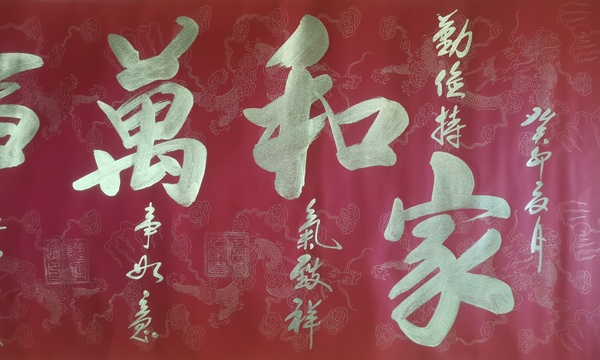 癸卯夏月
勤儉持家
和氣致祥
萬事如意